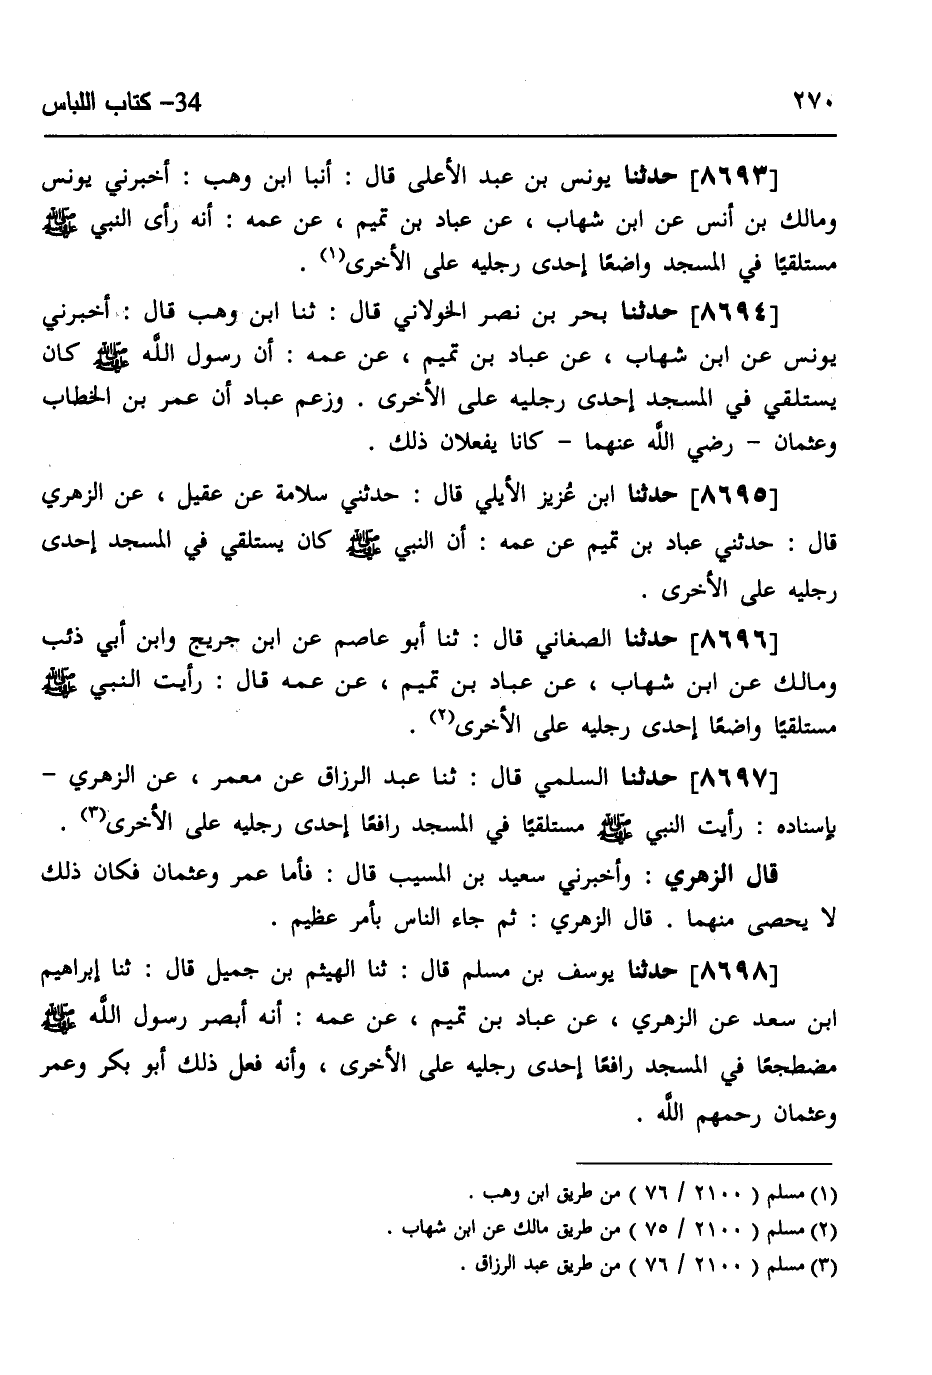 ٢٧٠
34- كتاب اللباس
[٨٦٩٣] حدثنا يونس بن عبد الأعلى قال : أنبا ابن وهب : أخبرني يونس
ومالك بن أنس عن ابن شهاب ، عن عباد بن تميم ، عن عمه : أنه رأى النبي ﷺ
مستلقيًا في المسجد واضعًا إحدى رجليه على الأخرى(١) .
[٨٦٩٤] حدثنا بحر بن نصر الخولاني قال : ثنا ابن وهب قال : أخبرني
يونس عن ابن شهاب ، عن عباد بن تميم ، عن عمه : أن رسول اللَّه ﷺ كان
يستلقي في المسجد إحدى رجليه على الأخرى . وزعم عباد أن عمر بن الخطاب
وعثمان – رضي اللَّه عنهما – كانا يفعلان ذلك .
[٨٦٩٥] حدثنا ابن عُزيز الأيلي قال : حدثني سلامة عن عقيل ، عن الزهري
قال : حدثني عباد بن تميم عن عمه : أن النبي ﷺ كان يستلقي في المسجد إحدى
رجليه على الأخرى .
[٨٦٩٦] حدثنا الصغاني قال : ثنا أبو عاصم عن ابن جريج وابن أبي ذئب
ومالك عن ابن شهاب ، عن عباد بن تميم ، عن عمه قال : رأيت النبي ﷺ
مستلقيًا واضعًا إحدى رجليه على الأخرى(٢) .
[٨٦٩٧] حدثنا السلمي قال : ثنا عبد الرزاق عن معمر ، عن الزهري –
بإسناده : رأيت النبي ﷺ مستلقيًا في المسجد رافعًا إحدى رجليه على الأخرى(٣) .
قال الزهري : وأخبرني سعيد بن المسيب قال : فأما عمر وعثمان فكان ذلك
لا يحصى منهما . قال الزهري : ثم جاء الناس بأمر عظيم .
[٨٦٩٨] حدثنا يوسف بن مسلم قال : ثنا الهيثم بن جميل قال : ثنا إبراهيم
ابن سعد عن الزهري ، عن عباد بن تميم ، عن عمه : أنه أبصر رسول اللَّه ﷺ
مضطجعًا في المسجد رافعًا إحدى رجليه على الأخرى ، وأنه فعل ذلك أبو بكر وعمر
وعثمان رحمهم اللَّه .
(١) مسلم ( ٢١٠٠ / ٧٦ ) من طريق ابن وهب .
(٢) مسلم ( ٢١٠٠ / ٧٥ ) من طريق مالك عن ابن شهاب .
(٣) مسلم ( ٢١٠٠ / ٧٦ ) من طريق عبد الرزاق .